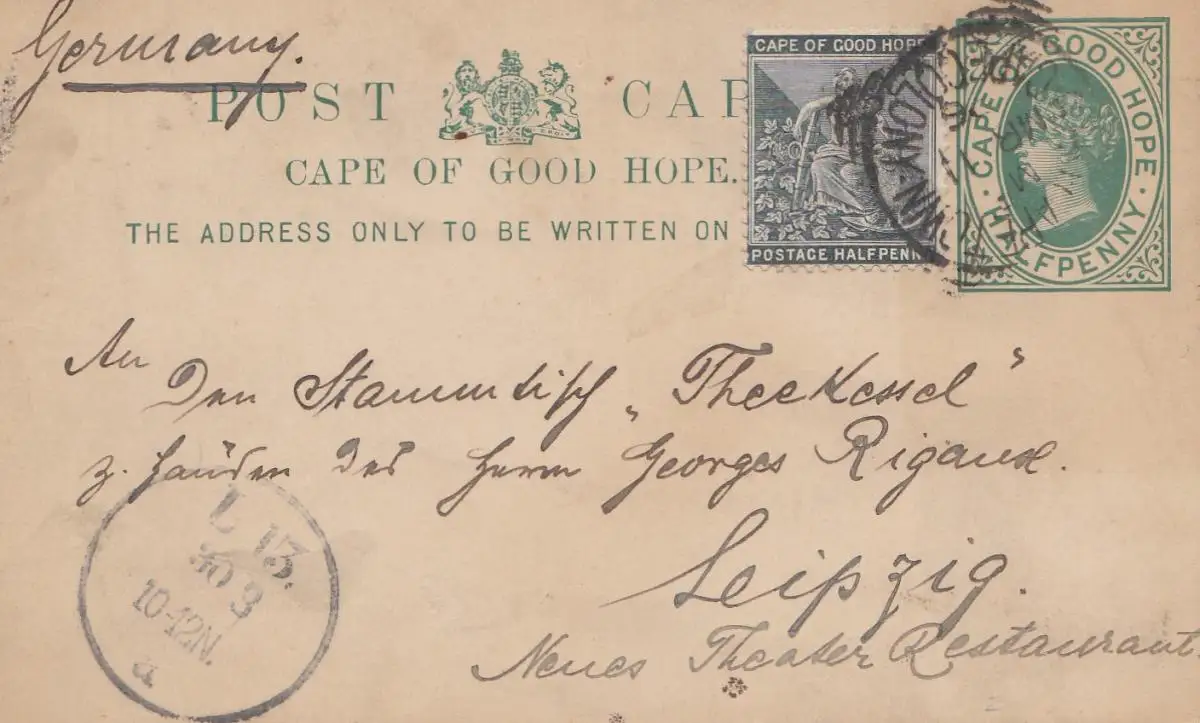 Germany.
POST CAR
CAPE OF GOOD HOPE.
THE ADDRESS ONLY TO BE WRITTEN ON
CAPE OF GOOD HOPE
POSTAGE HALFPENN
CAPE OF GOOD HOPE
HALFPENNY
An
Den Stammtisch „Theekessel“
z. Händen des Herrn Georges Rigaux.
Leipzig.
Neues Theater Restaurant.
L 13.
30 3
10-12N.
a